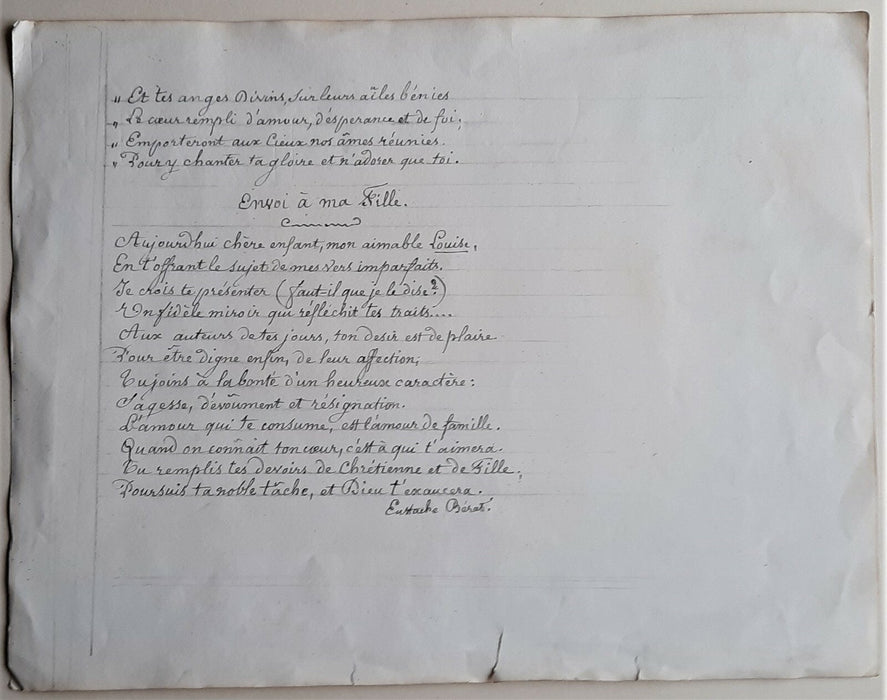 " Et tes anges Divins, sur leurs aîles bénies
" Le cœur rempli d'amour, d'ésperance et de foi;
" Emporteront aux Cieux nos âmes réunies.
" Pour y chanter ta gloire et n'adorer que toi.
Envoi à ma Fille.
Aujourd'hui chère enfant, mon aimable Louise,
En t'offrant le sujet de mes vers imparfaits.
Je crois te présenter (faut=il que je le dise?)
Un fidèle miroir qui réfléchit tes traits....
Aux auteurs de tes jours, ton desir est de plaire
Pour être digne enfin, de leur affection;
Tu joins à la bonté d'un heureux caractère:
Sagesse, dévoûment et résignation.
L'amour qui te consume, est l'amour de famille.
Quand on connaît ton cœur, c'est à qui t'aimera.
Tu remplis tes devoirs de Chrétienne et de Fille;
Poursuis ta noble tâche, et Dieu t'exaucera.
Eustache Bérat.